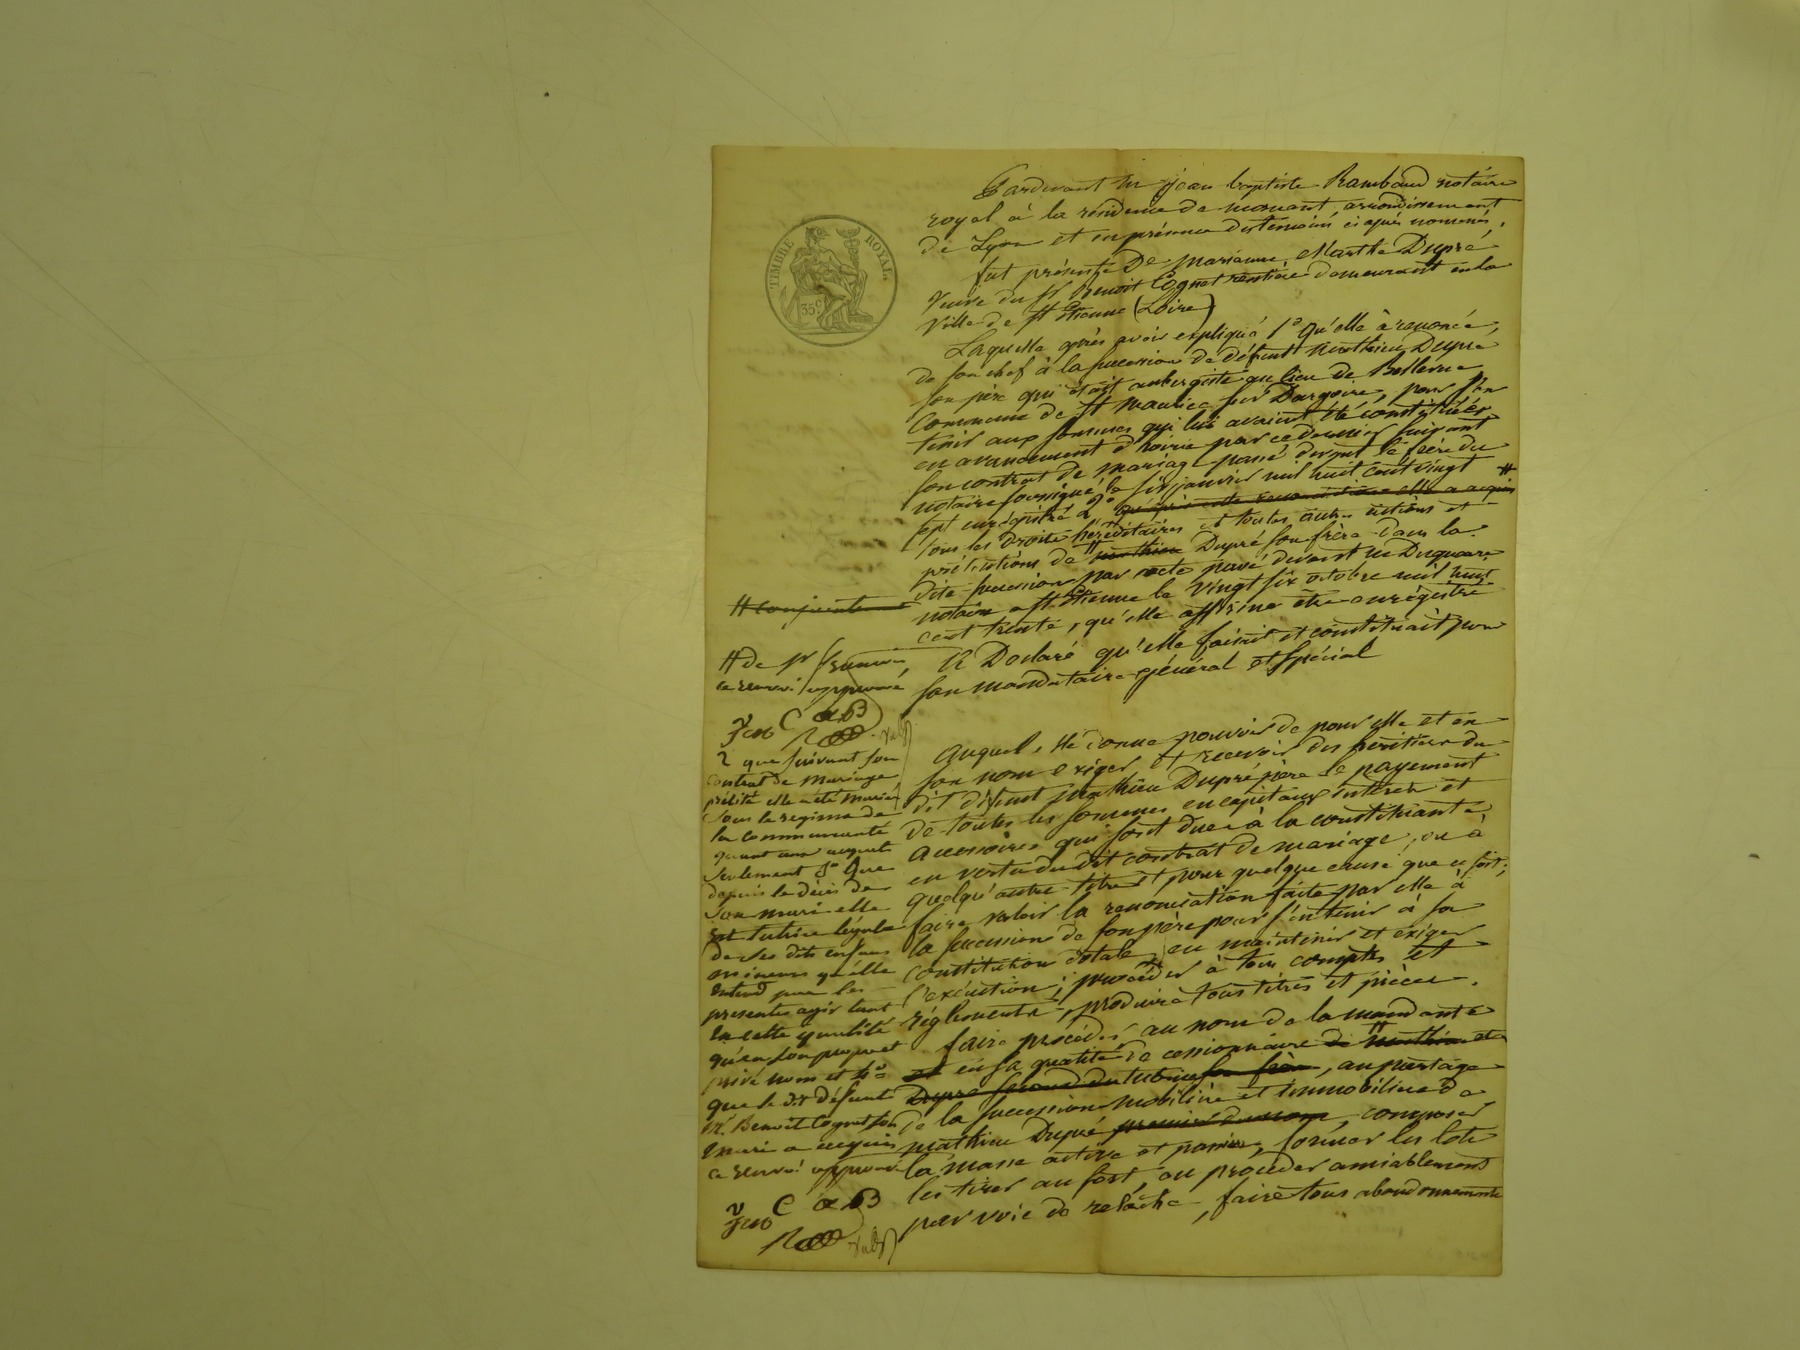 TIMBRE ROYAL
35 c
Pardevant Me jean baptiste Rambaud notaire
royal à la résidence de mornant, arrondissement
de Lyon et en présence des témoins ci après nommés,
fut présente De marianne Marthe Dupré,
Veuve du Sr Benoit Cognet rentière demeurant en la
Ville de St Etienne (Loire)
Laquelle après avoir expliqué 1o qu'elle à renoncée,
de son chef à la succession de défunt Mathieu Dupré
son père qui était aubergiste au lieu de Bellevue
Commune de St Maurice sur Dargoire, pour s'en
tenir aux sommes qui lui avaient été constituées
en avancement d'hoirie par ce dernier suivant
son contrat de mariage passé devant le frère du
notaire soussigné, le six janvier mil huit cent vingt
sept enregistré 2o qu'après cette renonciation elle a acquis
tous les Droits héréditaires et toutes autres actions et
prétentions de mathieu Dupré son frère dans la
dite succession par acte passé devant Me
notaire a St Etienne le vingt six octobre mil huit
cent trente, qu'elle affirme être enregistré
A Déclaré qu'elle faisait et constituait pour
son mandataire général et spécial
auquel elle donne pouvoir de pour elle et en
son nom exiger et recevoir des héritiers du
dit défunt Mathieu Dupré père le payement
de toutes les sommes en capitaux intérets et
accessoires qui sont dues à la constituante
en vertu du dit contrat de mariage, ou à
quelqu'autre titre et pour quelque cause que ce soit;
faire valoir la renonciation faite par elle à
la succession de son père pour s'en tenir à sa
constitution dotale, en maintenir et exiger
l'exécution; procéder à tous comptes et
règlements, produire tous titres et pièces.
faire procéder, au nom de la mandante
et en sa qualité de cessionnaire de mathieu
Dupré second du nom son frère, au partage
de la succession mobilière et immobilière de
mathieu Dupré premier du nom, composer
la masse active et passive, former les lots
les tirer au sort, ou procéder amiablement
par voie de relâche, faire tous abandonnements
# conjointement
# de pr
ce renvoi approuvé
C a.B
2 que suivant son
contrat de mariage
précité elle a été mariée
sous le régime de
la communauté
quant aux acquets
seulement 3o Que
depuis le décès de
son mari elle
est tutrice légale
de ses dits enfans
mineurs qu'elle
entend par les
présentes agir tant
en cette qualité
qu'en son propre et
privé nom et 4o
que le dit défunt
Sr Benoit Cognet son
mari a acquis
ce renvoi approuvé
C a.B